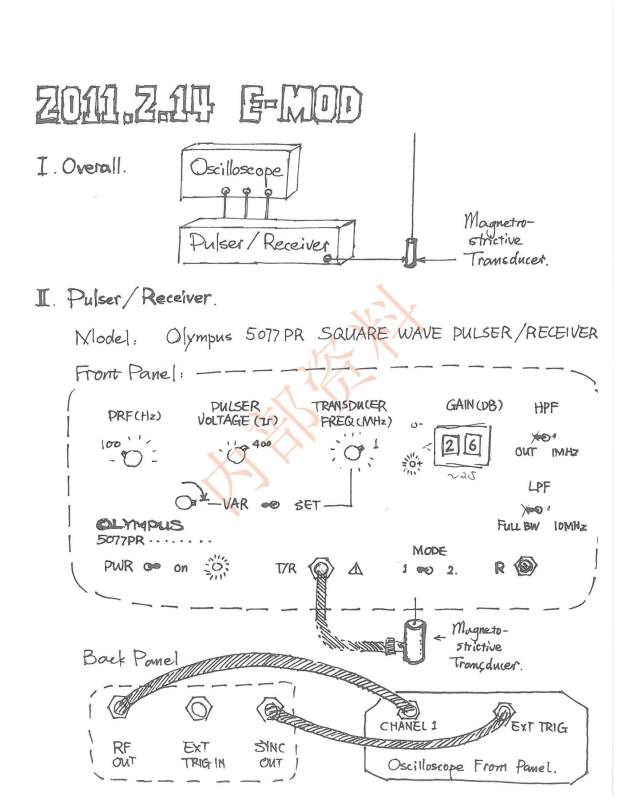 2011.2.14 E-MOD
I. Overall.
Oscilloscope
Pulser/Receiver
Magnetro-
strictive
Transducer.
II. Pulser/Receiver.
Model: Olympus 5077PR SQUARE WAVE PULSER/RECEIVER
Front Panel:
PRF(Hz)
100
PULSER
VOLTAGE(V)
400
TRANSDUCER
FREQ.(MHz)
1
GAIN(DB)
0-
0+
26
~25
HPF
OUT 1MHz
LPF
FULL BW 10MHz
VAR SET
OLYMPUS
5077PR........
PWR on
T/R
MODE
1 2.
R
Magneto-
strictive
Trançducer.
Back Panel
RF
OUT
EXT
TRIG IN
SYNC
OUT
CHANEL 1
EXT TRIG
Oscilloscope From Panel.
内部资料